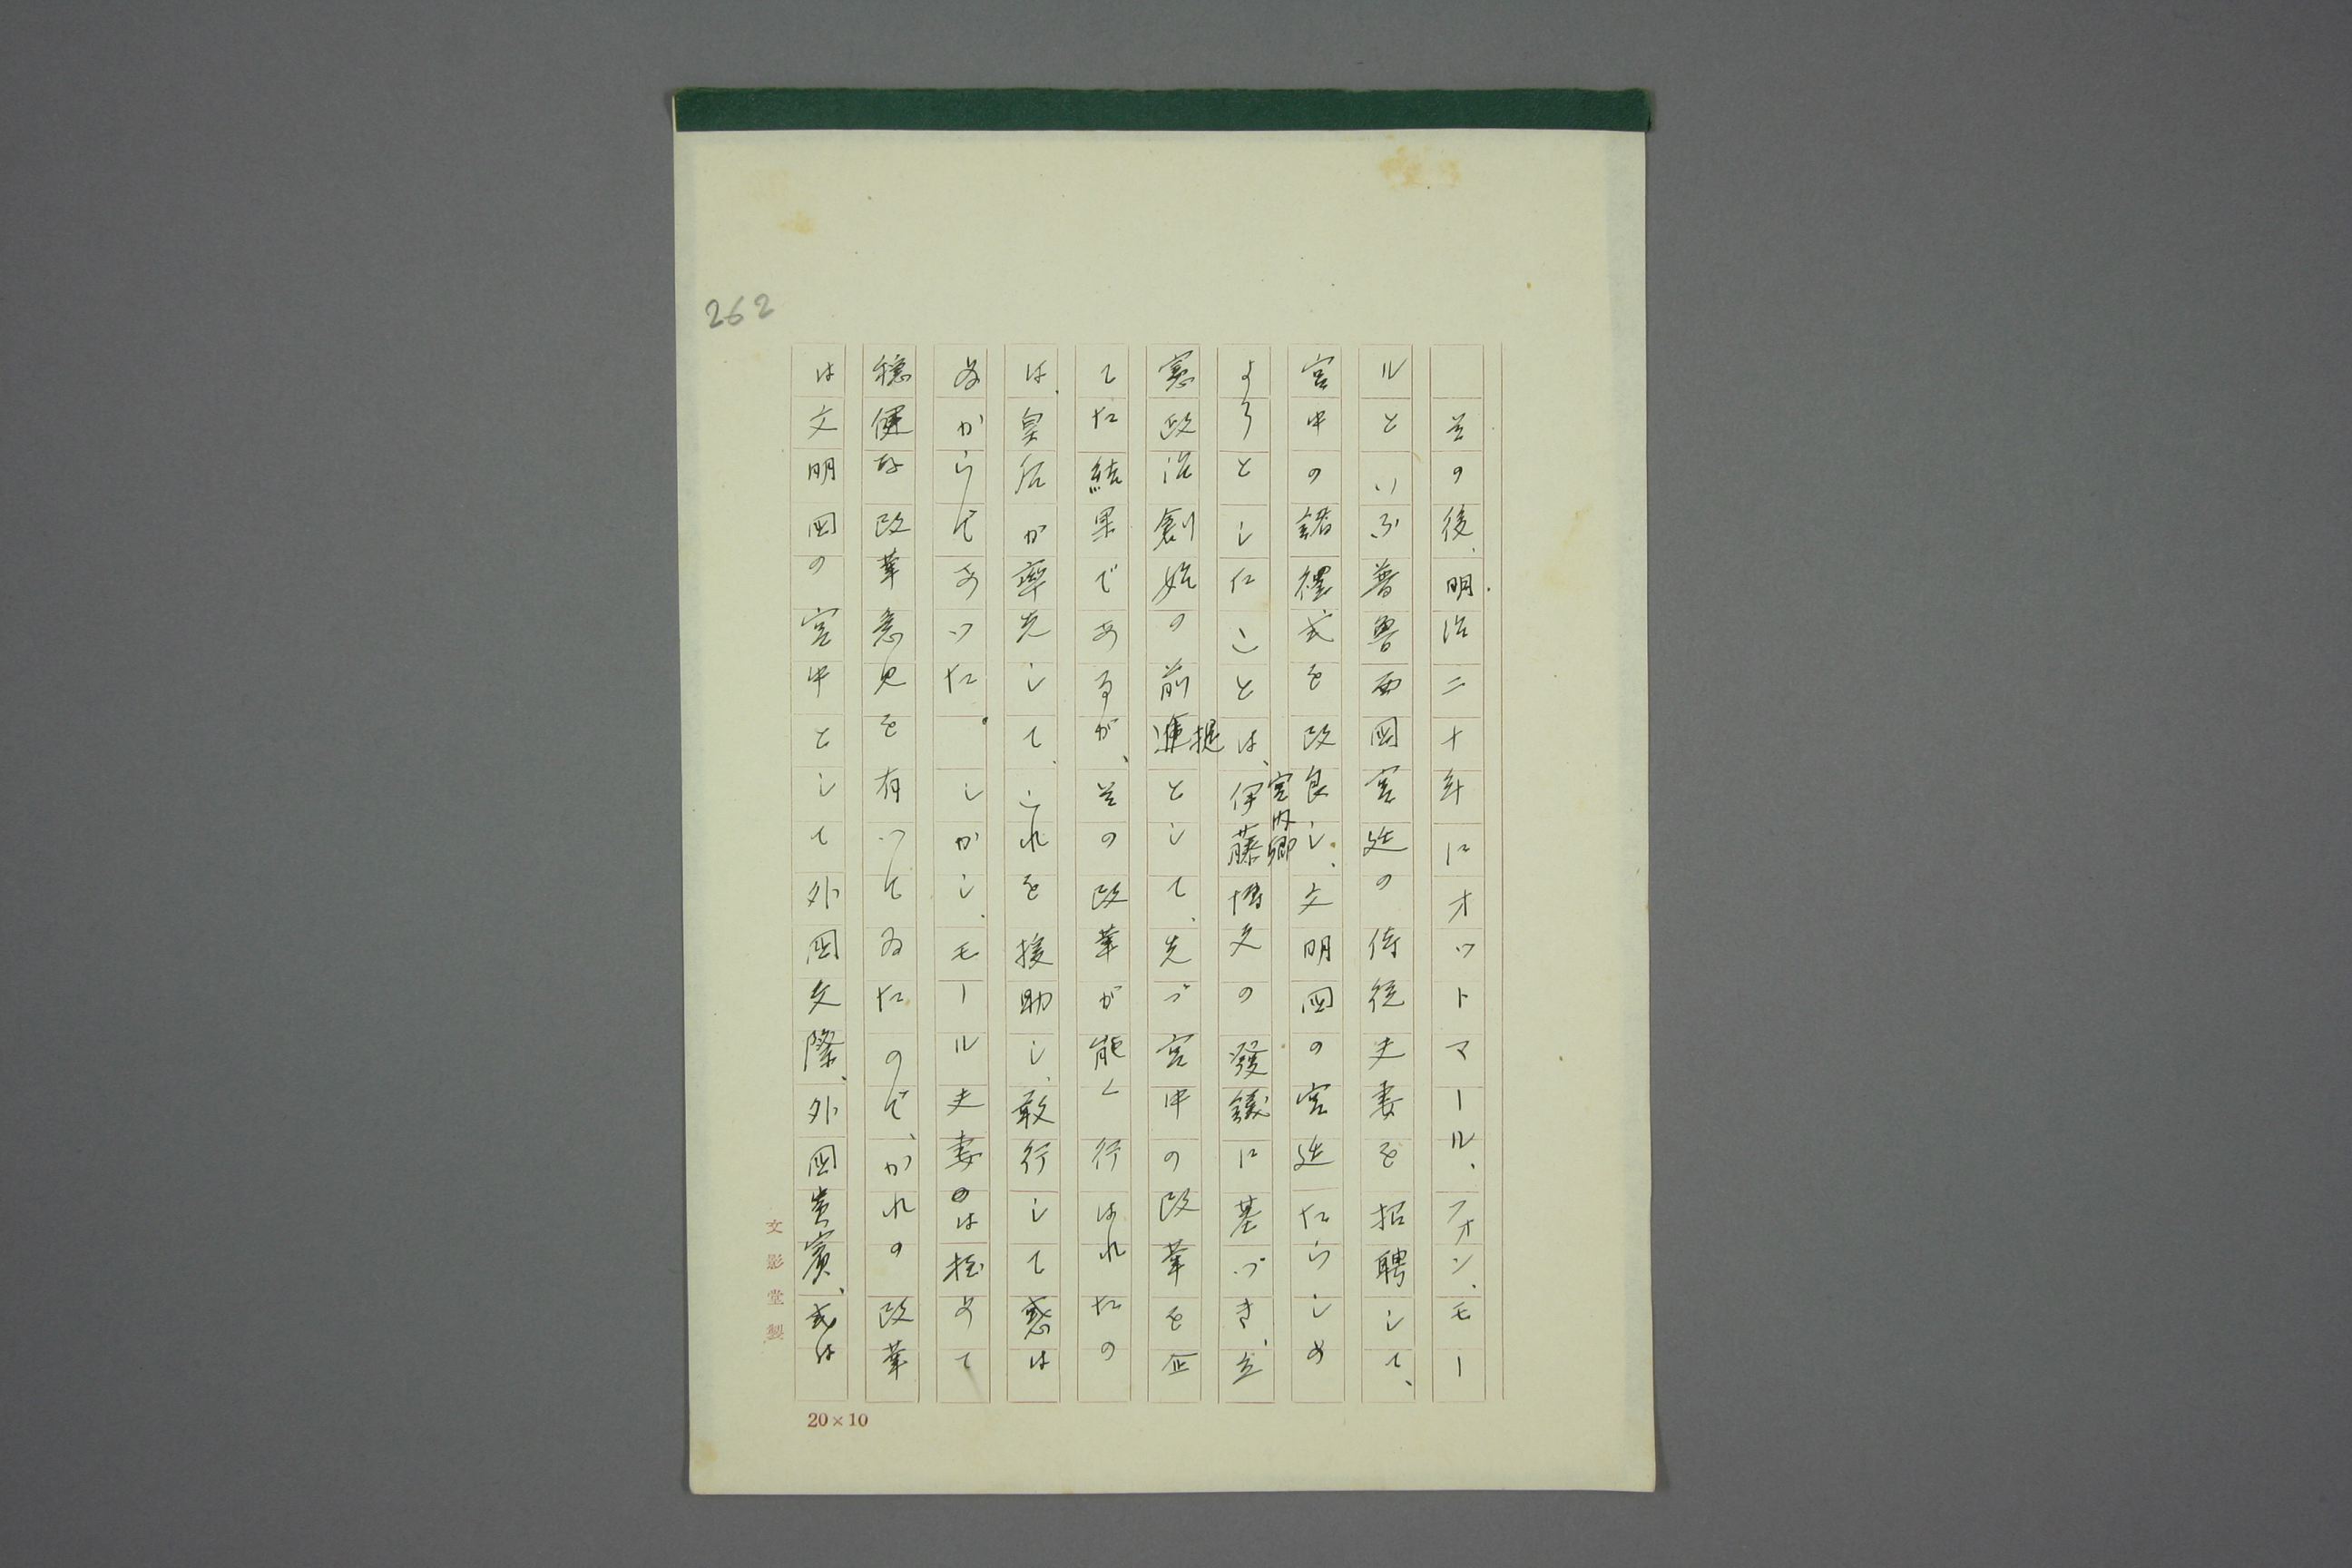 262
其の後、明治二十年にオットマール、フォン、モー
ルといふ普魯西國宮廷の侍従夫妻を招聘して、
宮中の諸禮式を改良し、文明国の宮廷たらしめ
ようとしたことは、宮内卿伊藤博文の發議に基づき、立
憲政治創始の前提として、先づ宮中の改革を企
てた結果であるが、其の改革が能く行はれたの
は、皇后が率先して、これを援助し、敢行して惑は
なからであつた。しかし、モール夫妻は極めて
穏健な改革意見を有つてゐたので、かれの改革
は文明国の宮中として外国交際、外国貴賓、或は
文影堂製
20×10